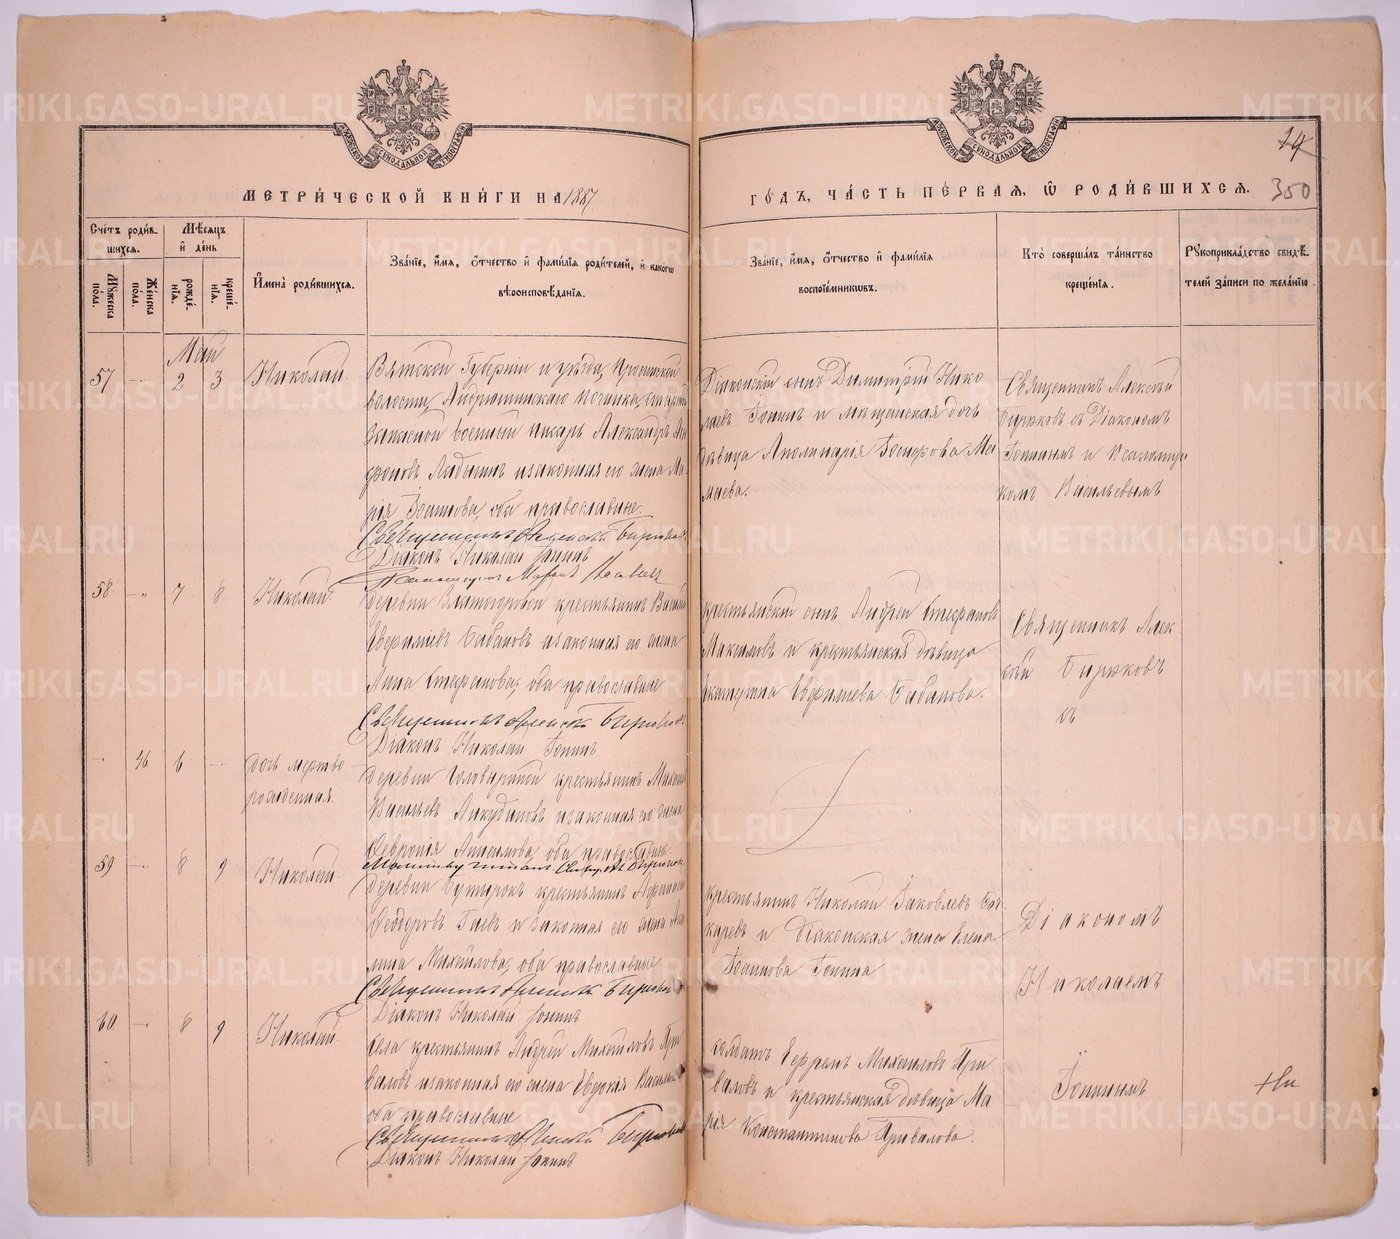 МЕТРИ́ЧЕСКОЙ КНИ́ГИ НА 1887
ГО́ДЪ, ЧА́СТЬ ПЕ́РВАЯ, Ѡ РОДИ́ВШИХСЯ.
14
350
Сче́тъ роди́в-
шихся.
Му́жеска
по́ла.
Же́нска
по́ла.
Мѣ́сяцъ
и де́нь
рожде́-
нїя.
креще́-
нїя.
И́мена роди́вшихся.
Зва́нїе, и́мя, о́тчество и фами́лїя роди́телей, и како́гѡ
вѣроисповѣ́данїя.
Зва́нїе, и́мя, о́тчество и фами́лїя
воспрїе́мниковъ.
Кто̀ соверша́лъ та́инство
креще́нїя.
Рукоприкла́дство свидѣ́-
телей за́писи по жела́нїю.
Май
57
2
3
Николай
Вятской Губерніи и уѣзда,
волости,
запасной военный писарь Александръ
изаконная его жена Ма-
рія Іоаннова, оба православные.
Священникъ Алексѣй Бирюковъ
Діаконъ Николай Іонинъ
Діаконскій сынъ Димитрій Нико-
лаевъ Іонинъ и мѣщанская дочь
дѣвица Аполинарія Ма-
маева.
Священникъ Алексѣй
Бирюковъ съ Діакономъ
Іонинымъ и Псаломщи-
комъ Васильевымъ
58
7
8
Николай
деревни крестьянинъ Василій
Евфиміевъ Бабановъ изаконная его жена
Анна Стефанова, оба православные
Священникъ Алексѣй Бирюковъ
Діаконъ Николай Іонинъ
крестьянскій сынъ Андрей Стефановъ
Максимовъ и крестьянская дѣвица
Екатерина Евфиміева Бабанова.
Священникъ Алек-
сѣй Бирюковъ
съ
46
6
дочь мертво-
рожденная.
деревни крестьянинъ Михаилъ
Васильевъ изаконная его жена
Февронія Анисимова, оба православные
Молитву читалъ Священникъ Бирюковъ
59
8
9
Николай
деревни Бутырокъ крестьянинъ
Ѳеодоровъ и законная его жена
Михайлова, оба православные
Священникъ Алексѣй Бирюковъ
Діаконъ Николай Іонинъ
крестьянинъ Николай Іаковлевъ
и діаконская жена Елена
Іоаннова Іонина
Діакономъ
Николаемъ
60
8
9
Николай
села крестьянинъ Андрей Михайловъ При-
валовъ изаконная его жена Евдокія
оба православные
Священникъ Алексѣй Бирюковъ
Діаконъ Николай Іонинъ
солдатъ Ефремъ Михайловъ При-
валовъ и крестьянская дѣвица Ма-
рія Константинова Привалова.
Іонинымъ
METRIKI.GASO-URAL.RU